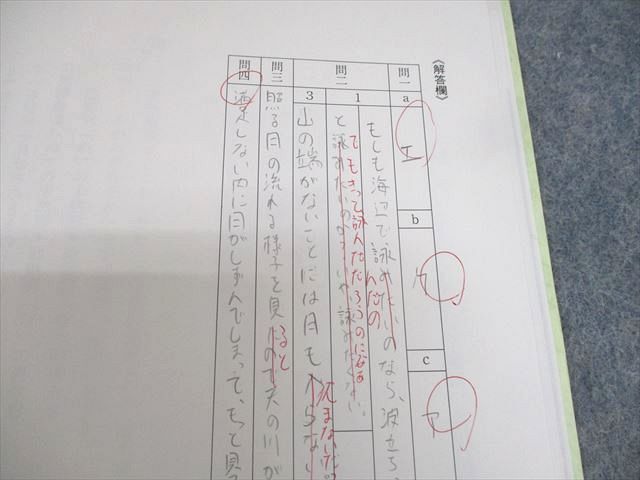 《解答欄》
問一
a
エ
b
ケ
c
ア
問二
1
もしも海辺で詠みたいのなら、波立ち
んだの
と詠みたいのか
詠みたくない。
でもきって詠んだだろうのになあ
3
山の端がないことには月も入らない
死まないだ
問三
照る月の流れる様子を見るので天の川が
ると
問四
満足しない内に月がしずんでしまって、もっと見